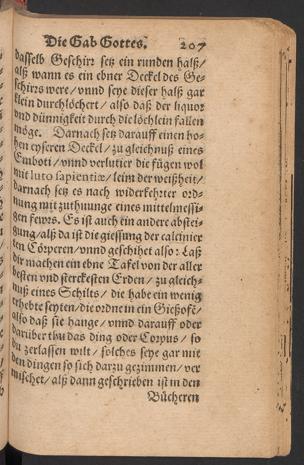 Die Gab Gottes. 207
dasselb Geschirr setz ein runden halß/
alß wann es ein ebner Deckel des Ge-
schirrs were/ vnnd seye dieser halß gar
klein durchlöchert/ also daß der liquor
vnd dünnigkeit durch die löchlein fallen
möge. Darnach setz darauff einen ho-
hen eyseren Deckel/ zu gleichnuß eines
Emboti/ vnnd verlutier die fügen wol
mit luto sapientiæ/ leim der weißheit/
darnach setz es nach widerkehrter ord-
nung mit zuthuunge eines mittelmessi-
gen fewrs. Es ist auch ein andere abstei-
gung/ alß da ist die giessung der calcinier
ten Cörperen/ vnnd geschihet also: Laß
dir machen ein ebne Tafel von der aller
besten vnd sterckesten Erden/ zu gleich-
nuß eines Schilts/ die habe ein wenig
erhebte seyten/ die ordne in ein Gießofē/
also daß sie hange/ vnnd darauff oder
darüber thu das ding oder Corpus/ so
du zerlassen wilt/ solches seye gar mit
den dingen so sich darzu gezimmen/ ver
mischet/ alß dann geschrieben ist in den
Bücheren